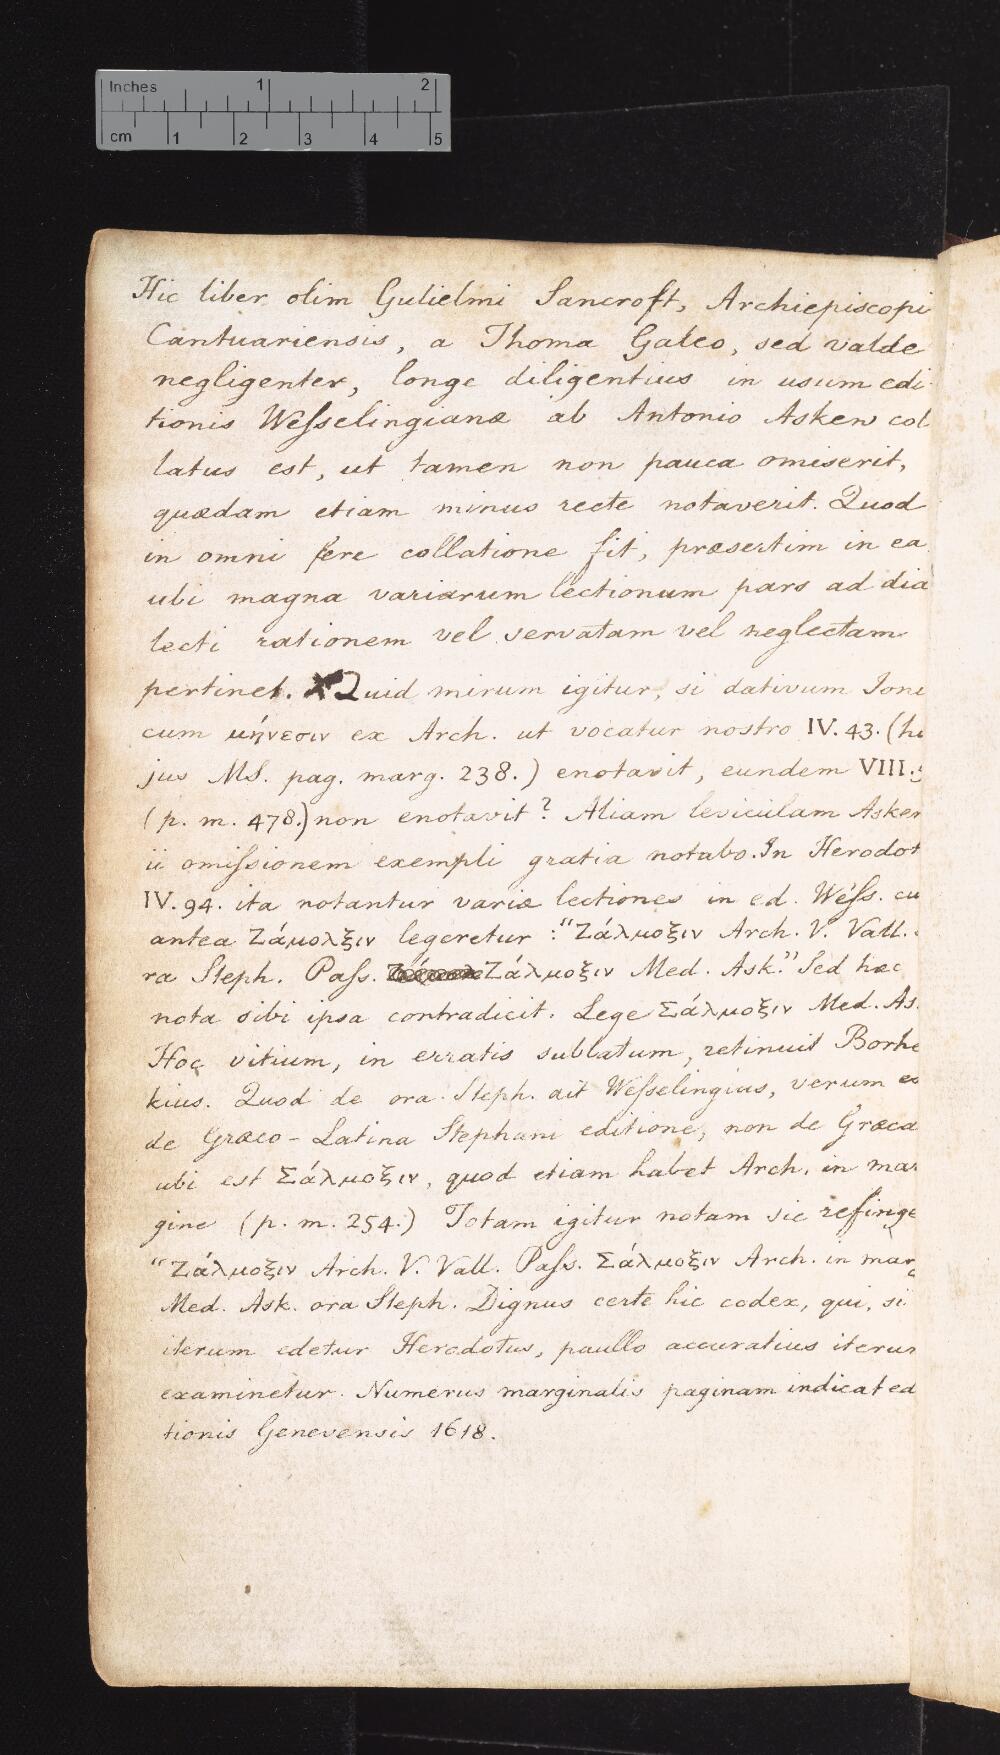 Inches 1 2
cm 1 2 3 4 5
Hic liber olim Gulielmi Sancroft, Archiepiscopi
Cantuariensis, a Thoma Galeo, sed valde
negligenter, longe diligentius in usum edi
tionis Weſselingianæ ab Antonio Askew col
latus est, ut tamen non pauca omiserit,
quædam etiam minus recte notaverit. Quod
in omni fere collatione fit, præsertim in ea
ubi magna variarum lectionum pars ad dia
lecti rationem vel servatam vel neglectam
pertinet. Quid mirum igitur, si dativum Joni
cum μήνεσιν ex Arch. ut vocatur nostro IV. 43. (hu
jus MS. pag. marg. 238.) enotavit, eundem VIII.
(p. m. 478.) non enotavit? Aliam leviculam Askew
ii omiſsionem exempli gratia notabo. In Herodot
IV. 94. ita notantur variæ lectiones in ed. Weſs. cu
antea Ζάμολξιν legeretur: "Ζάλμοξιν Arch. V. Vall.
ra Steph. Paſs. Ζάλμοξιν Med. Ask." Sed hæc
nota sibi ipsa contradicit. Lege Σάλμοξιν Med. As.
Hoc vitium, in erratis sublatum, retinuit Borhe
kius. Quod de ora Steph. ait Weſselingius, verum es
de Græco-Latina Stephani editione, non de Græca
ubi est Σάλμοξιν, quod etiam habet Arch. in mar
gine (p. m. 254.) Totam igitur notam sic refinge
"Ζάλμοξιν Arch. V. Vall. Paſs. Σάλμοξιν Arch. in marg
Med. Ask. ora Steph. Dignus certe hic codex, qui, si
iterum edetur Herodotus, paullo accuratius iterum
examinetur. Numerus marginalis paginam indicat ed
tionis Genevensis 1618.